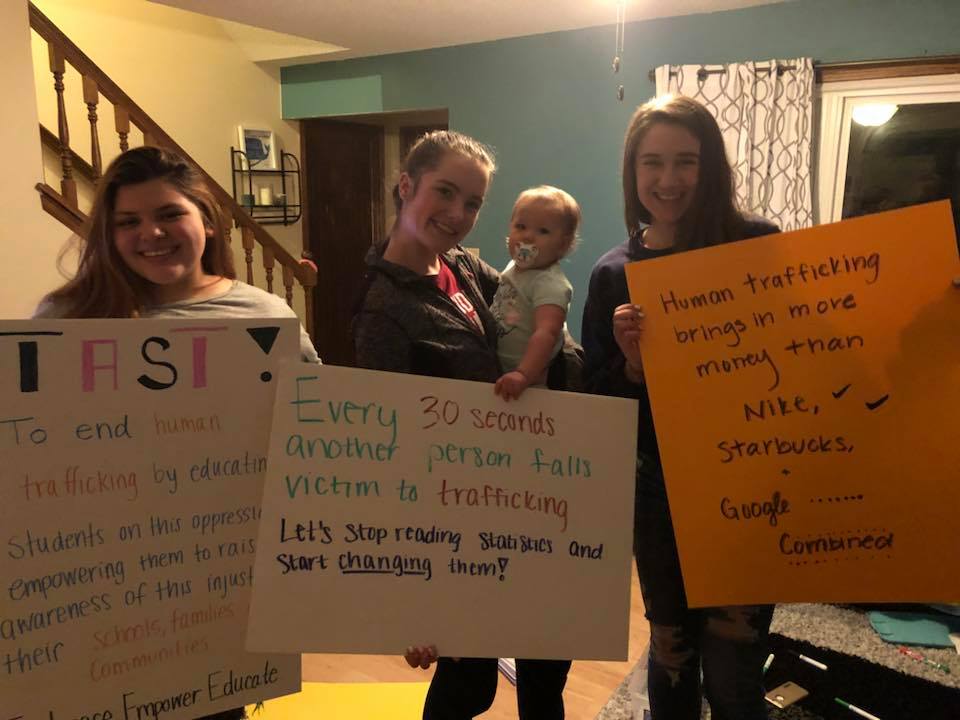 TAST!
To end human
trafficking by
Students on this
empowering them to
awareness of this
their schools, families
Communities
Empower Educate
Every 30 seconds
another person falls
victim to trafficking
Let's stop reading statistics and
start changing them!
Human trafficking
brings in more
money than
Nike,
Starbucks,
+
Google .......
Combined